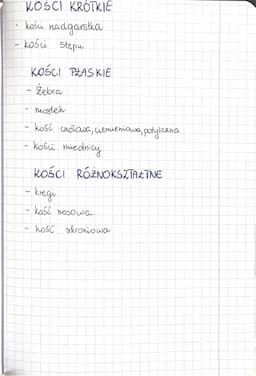 KOŚCI KRÓTKIE
- kości nadgarstka
- kości stępu
KOŚCI PŁASKIE
- żebra
- mostek
- kość czołowa, ciemieniowa, potyliczna
- kości miednicy
KOŚCI RÓŻNOKSZTAŁTNE
- kręgi
- kość nosowa
- kość skroniowa